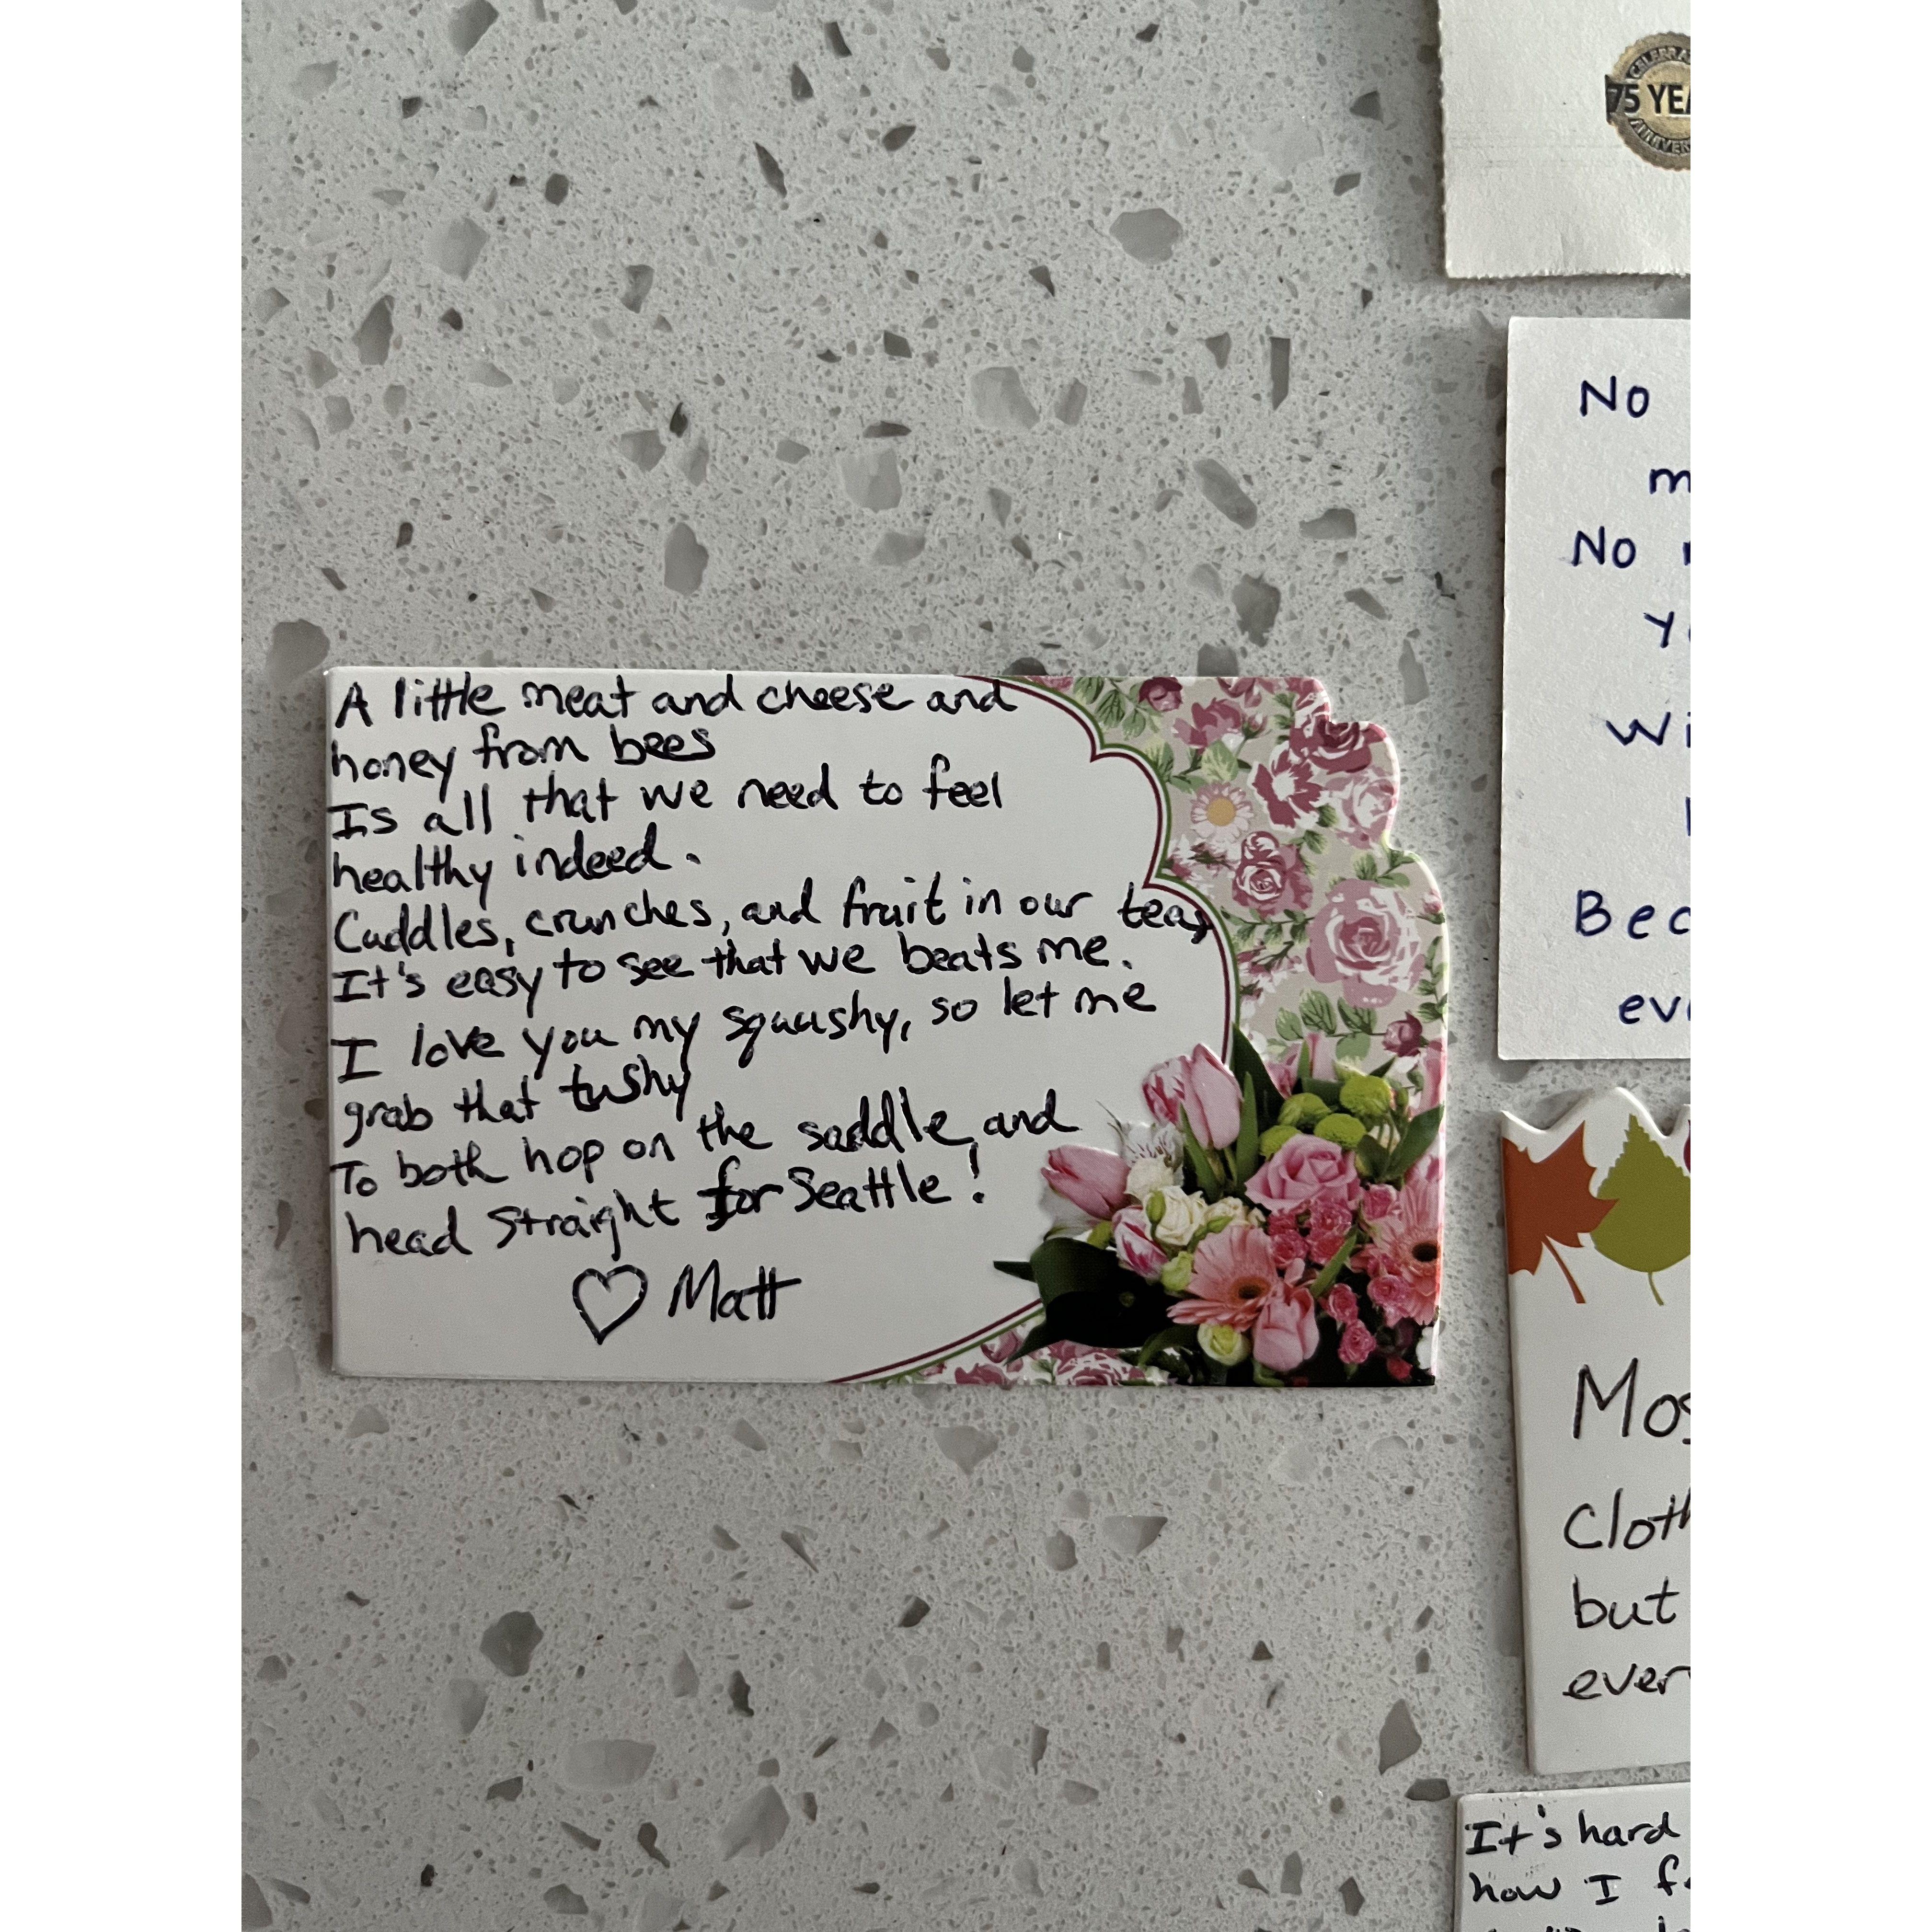 CELEBRA
75 YEA
ANNIVER
A little meat and cheese and
honey from bees
Is all that we need to feel
healthy indeed.
Cuddles, crunches, and fruit in our teas
It's easy to see that we beats me.
I love you my squushy, so let me
grab that tushy
To both hop on the saddle, and
head straight for Seattle!
♡ Matt
No
m
No
Wi
Bec
ev
Mos
Cloth
but
ever
It's hard
how I f